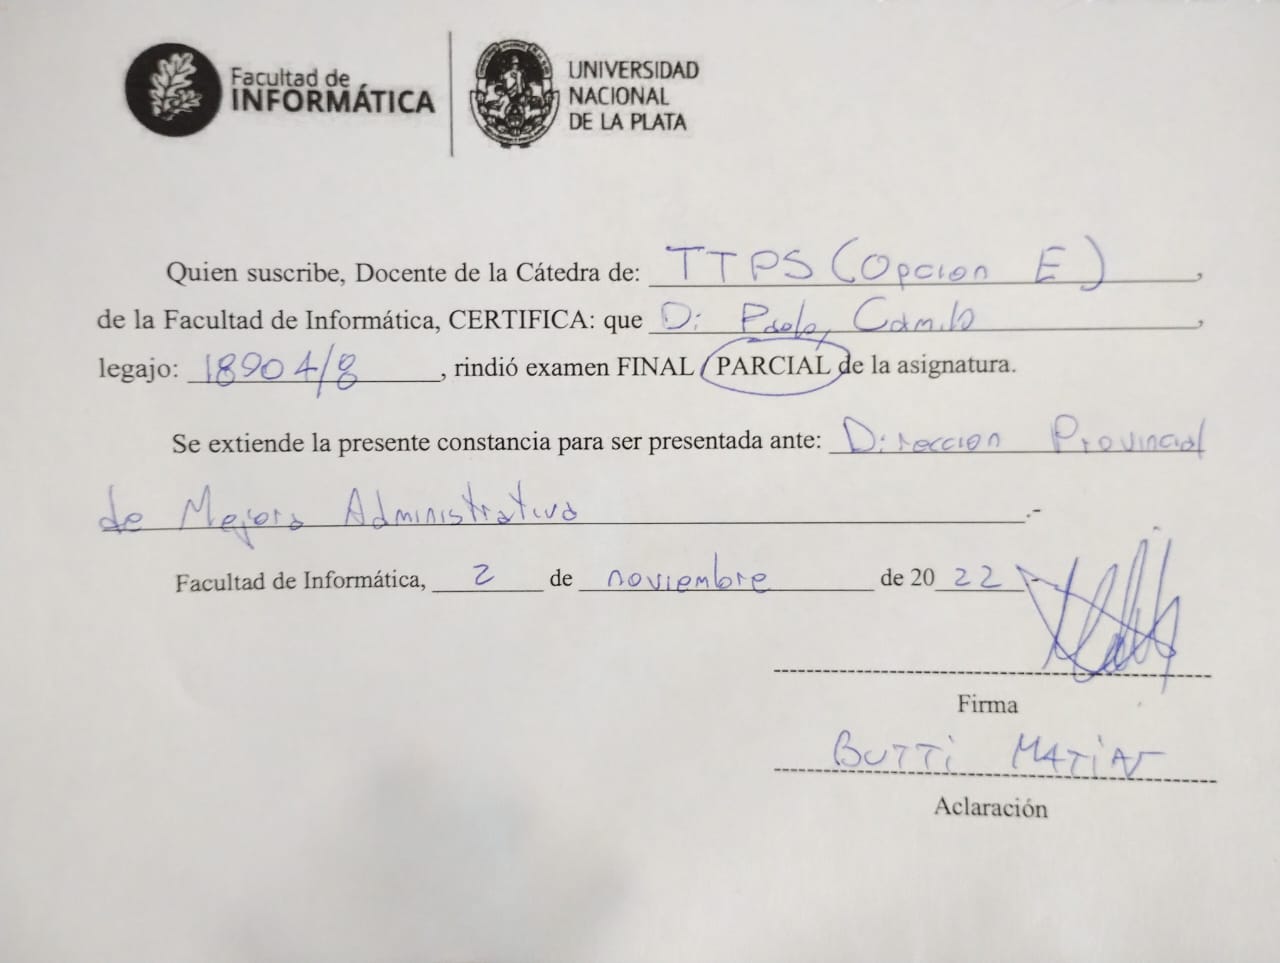 Facultad de
INFORMÁTICA
UNIVERSIDAD
NACIONAL
DE LA PLATA
Quien suscribe, Docente de la Cátedra de: TTPS (Opcion E),
de la Facultad de Informática, CERTIFICA: que Di Paolo, Camilo,
legajo: 18904/8, rindió examen FINAL / PARCIAL de la asignatura.
Se extiende la presente constancia para ser presentada ante: Direccion Provincial
de Mejora Administrativa.-
Facultad de Informática, 2 de noviembre de 2022.-
Firma
BUTTI MATIAS
Aclaración